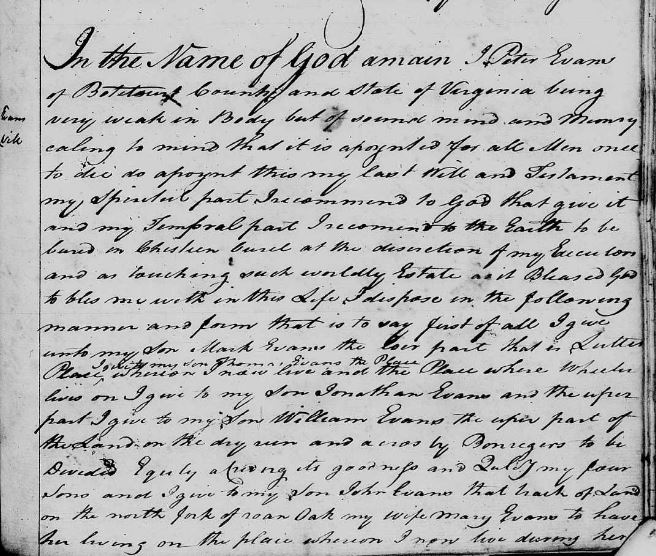 In the Name of God amain I Peter Evans
of Botetourt County and State of Virginia being
Evans
very weak in Body but of sound mind and Memry
Will
caling to mind that it is apoynted for all Men once
to die do apoynt this my last Will and Testament
my Spiritul part I recommend to God that give it
and my Temporal part I recomend to the Earth to be
bured in Christien burel at the discretion of my Executors
and as touching such worldly Estate as it Bleased God
to bles me with in this Life I dispose in the following
manner and form that is to say first of all I give
unto my Son Mark Evans the loer part that is
I give to my son Thomas Evans the Place
Place whereon I now live and the Place where Wheeler
lives on I give to my Son Jonathan Evans and the uper
part I give to my Son William Evans the uper part of
the Land on the dry run and acros by to be
Divided Equely its goodness and my four
Sons and I give to my Son John Evans that track of Land
on the north fork of roan Oak my wife Mary Evans to have
her living on the place whereon I now live during her